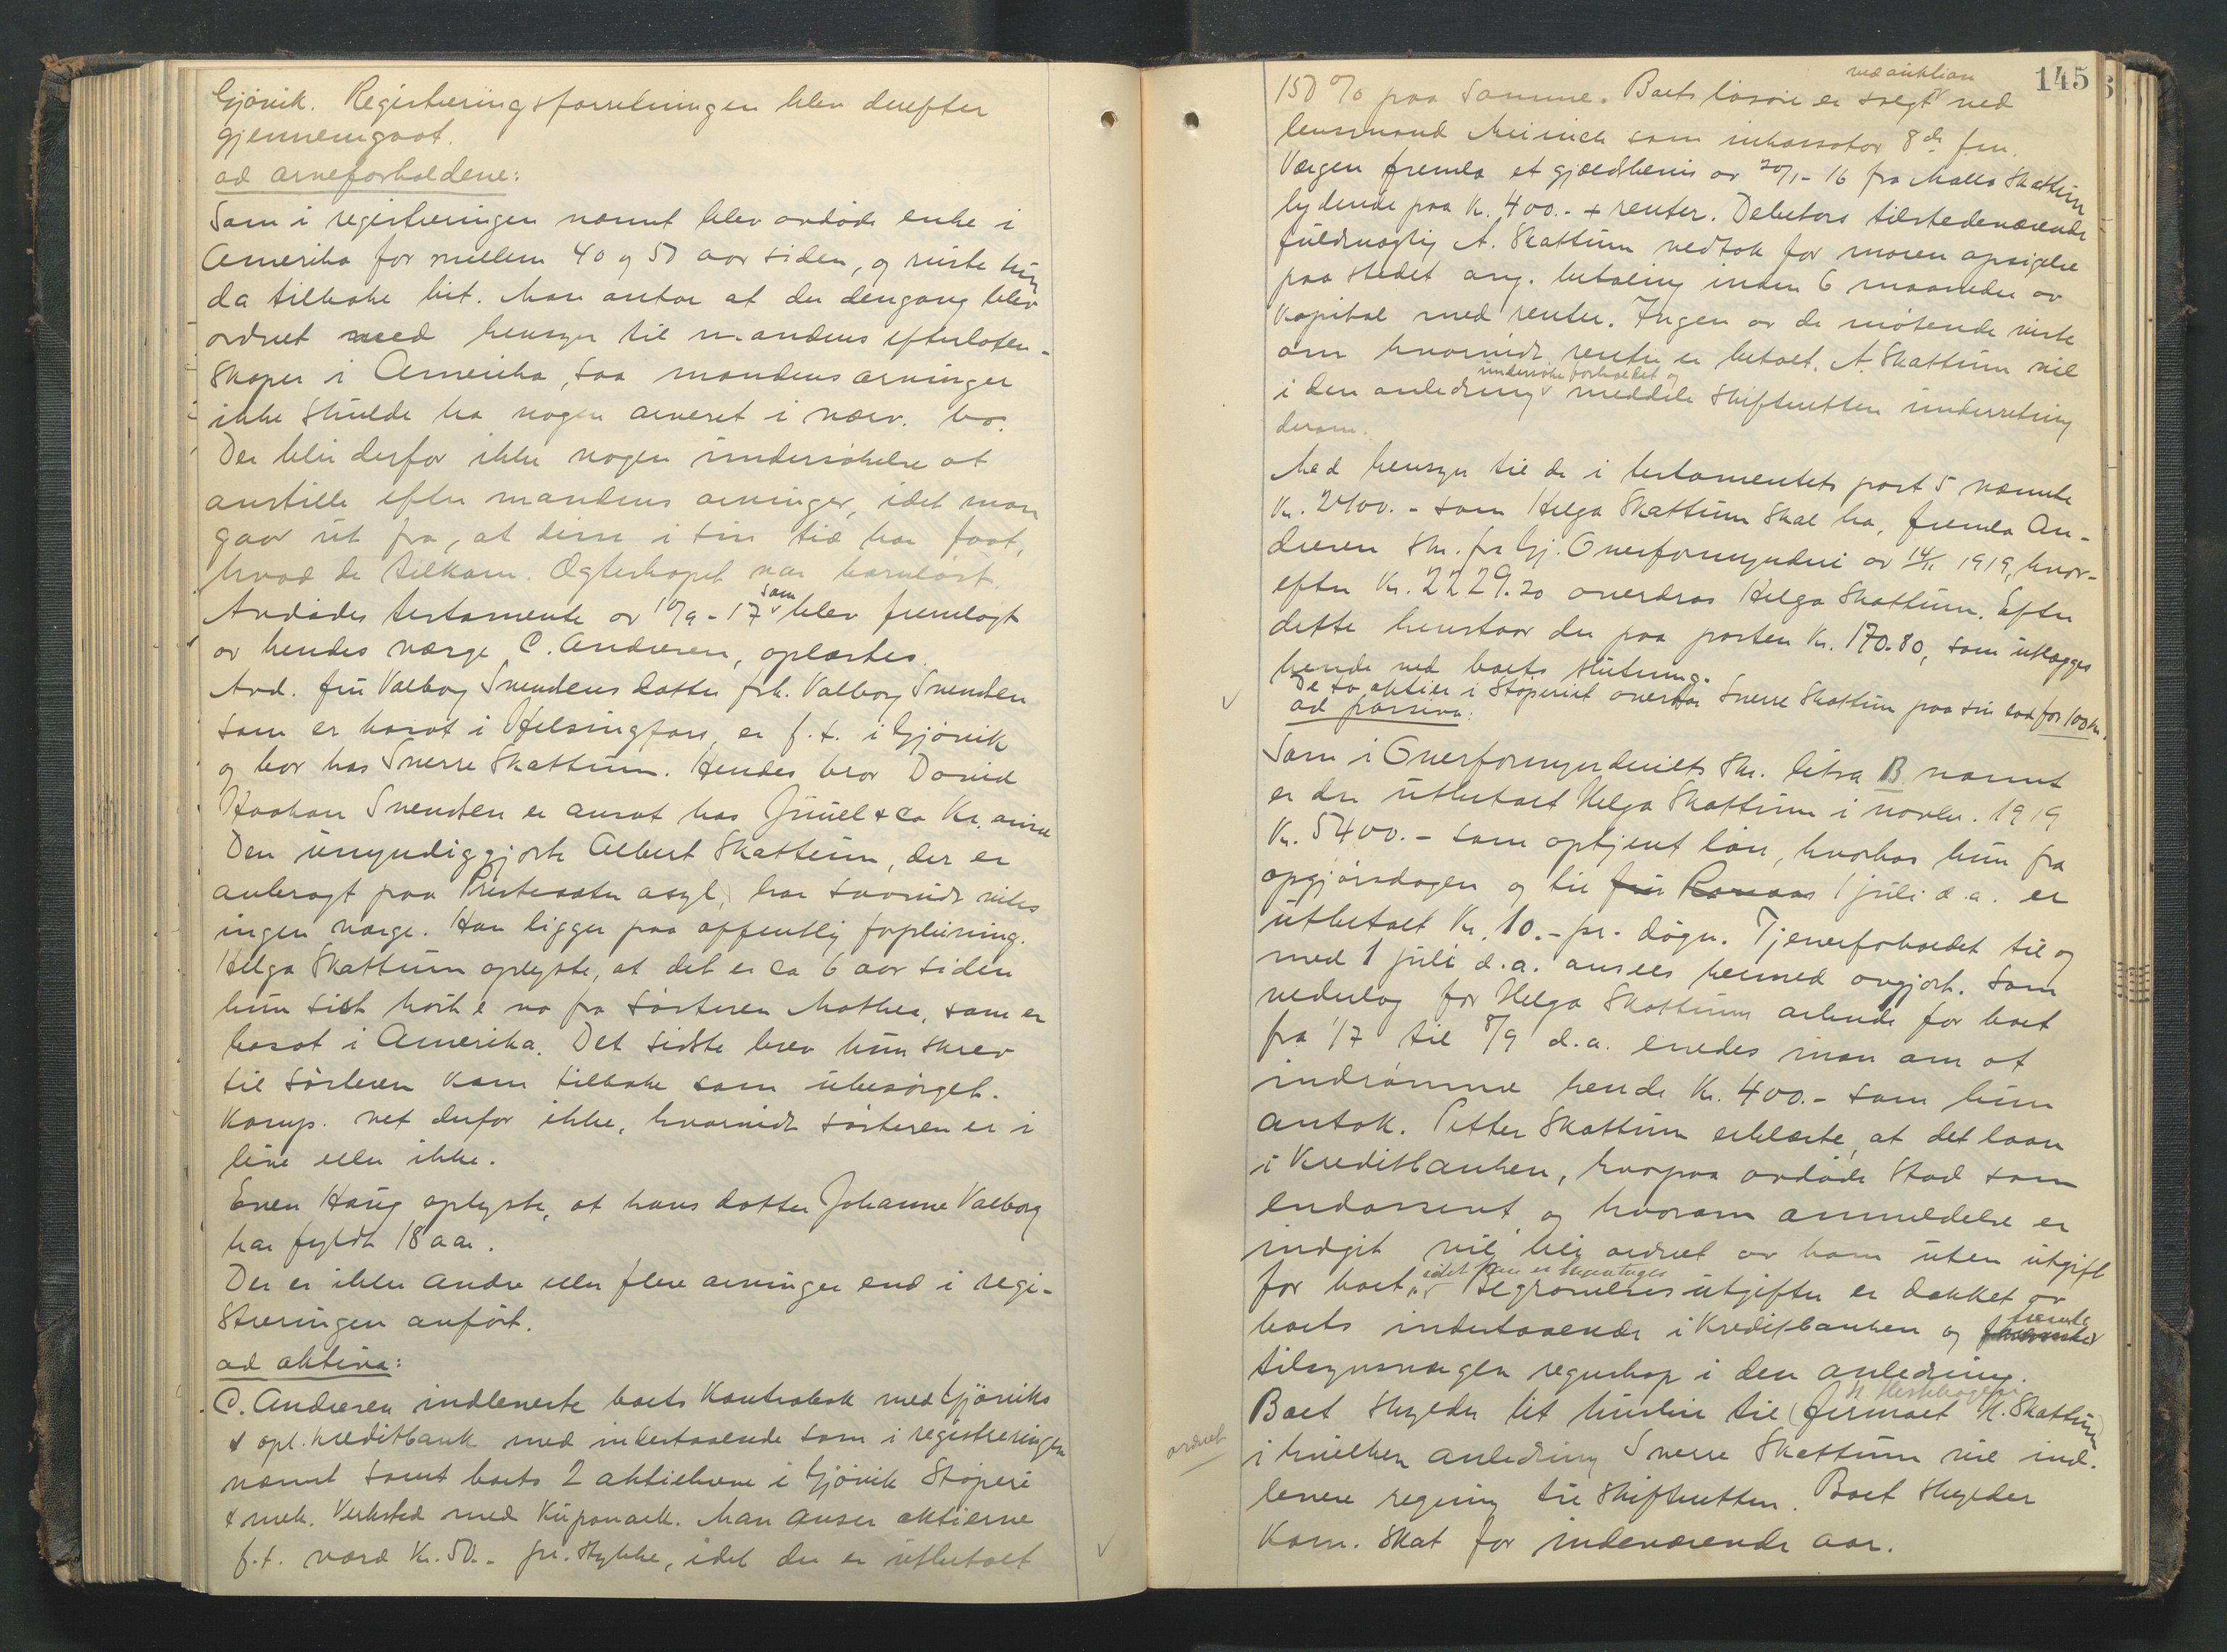 Gjövik. Registreringsforretningen blev derefter
gjennemgaat.
ad arveforholdene:
Som i registreringen nævnt blev avdöde enke i
Amerika for mellem 40 og 50 aar siden, og reiste hun
da tilbake hit. Man antar at der dengang blev
ordnet med hensyn til mandens efterlaten-
skaper i Amerika, saa mandens arvinger
ikke skulde ha nogen arveret i nærv. bo.
Der blir derfor ikke nogen undersökelse at
anstille efter mandens arvinger, idet man
gaar ut fra, at disse i sin tid har faat,
hvad de tilkom. Egteskapet var barnlöst.
Avdödes testamente av 10/9-17 som blev fremlagt
av hendes værge C. Andresen, oplæstes.
Avd. fru Valborg Svendsens datter frk. Valborg Svendsen
som er bosat i Helsingfors, er f.t. i Gjövik
og bor hos Sverre Skattum. Hendes bror David
Haakon Svendsen er ansat hos Juuel & Co Kr.ania
Den umyndiggjorte Albert Skattum, der er
anbragt paa Presteseter asyl, har saavidt vites
ingen værge. Han ligger paa offentlig forpleining.
Helga Skattum oplyste, at det er ca 6 aar siden
hun sist hörte no fra sösteren Mathea, som er
bosat i Amerika. Det sidste brev hun skrev
til sösteren kom tilbake som ubesörget.
Komp. vet derfor ikke, hvorvidt sösteren er i
live eller ikke.
Even Haug oplyste, at hans datter Johanne Valborg
har fyldt 18 aar.
Der er ikke andre eller flere arvinger end i regi-
streringen anfört.
ad aktiva:
C. Andresen indleverte boets Kontrabok med Gjöviks
& opl. kreditbank med indestaaende som i registreringen
nævnt samt boets 2 aktiebreve i Gjövik Stöperi
& mek. Verksted med Kuponark. Man anser aktierne
f.t. værd Kr. 50.- pr. stykke, idet der er utbetalt
145
150 % paa samme. Boets lösöre er solgt ved auktion ved
lensmand Meinich som inkassator 8 ds. f.m.
Værgen fremla et gjældsbevis av 20/1-16 fra Malla Skattum
lydende paa Kr. 400.- + renter. Debitors tilstedeværende
fuldmægtig A. Skattum vedtok for moren opsigelse
paa stedet ang. betaling inden 6 maaneder av
Kapital med renter. Ingen av de mötende viste
om hvorvidt renter er betalt. A. Skattum vil
i den anledning undersöke forholdet og meddele skifteretten underretning
derom.
Med hensyn til de i testamentets post 5 nævnte
Kr. 2400.- som Helga Skattum skal ha, fremla An-
dresen skr. fra Gj. Overformynderi av 14/11 1919, hvor-
efter Kr. 2229.20 overdras Helga Skattum. Efter
dette henstaar der paa posten Kr. 170.80, som utlægges
hende ved boets slutning.
De to aktier i Stöperiet overtar Sverre Skattum paa sin lod for 100 kr.
ad passiva:
Som i Overformynderiets skr. litra B nævnt
er der utbetalt Helga Skattum i novbr. 1919
Kr. 5400.- som optjent lön, hvorhos hun fra
opgjörsdagen og til 1 juli d.a. er
utbetalt Kr. 10.- pr. dögn. Tjenerforholdet til og
med 1 juli d.a. ansees hermed avgjort. Som
vederlag for Helga Skattums arbeide for boet
fra 1/7 til 8/9 d.a. enedes man om at
indrömme hende Kr. 400.- som hun
antok. Petter Skattum erklærte, at det laan
i Kreditbanken, hvorpaa avdöde stod som
endossent, og hvorom anmeldelse er
indgit vil bli ordnet av ham uten utgift
for boet. Begravelsesutgifter er dækket av
boets indestaaende i Kreditbanken og fremla
tilsynsværgen regnskap i den anledning.
Boet skylder lit husleie til (firmaet K. Skattum)
ordnet
i hvilken anledning Sverre Skattum vil ind-
levere regning til skifteretten. Boet skylder
Kom. skat for indeværende aar.